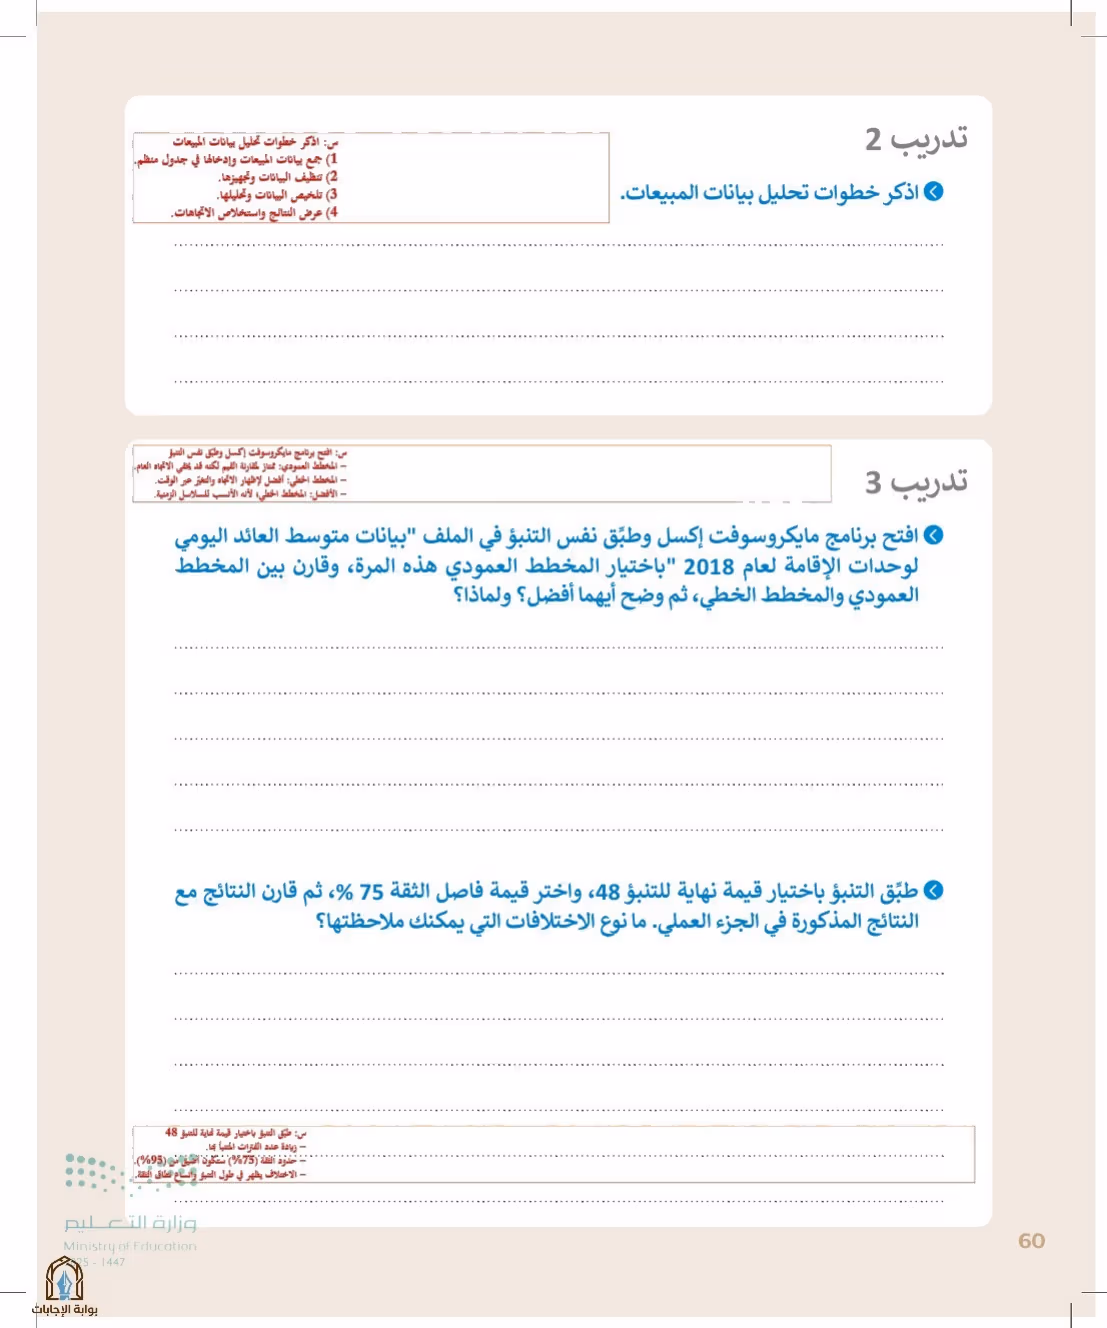 تدريب 2
اذكر خطوات تحليل بيانات المبيعات.
س: اذكر خطوات تحليل بيانات المبيعات
1) جمع بيانات المبيعات وإدخالها في جدول منظم.
2) تنظيف البيانات وتجهيزها.
3) تلخيص البيانات وتحليلها.
4) عرض النتائج واستخلاص الاتجاهات.
تدريب 3
س: افتح برنامج مايكروسوفت إكسل وطبّق نفس التنبؤ
– المخطط العمودي: ممتاز لمقارنة القيم لكنه قد يخفي الاتجاه العام.
– المخطط الخطي: أفضل لإظهار الاتجاه والتغيّر عبر الوقت.
– الأفضل: المخطط الخطي؛ لأنه الأنسب للسلاسل الزمنية.
افتح برنامج مايكروسوفت إكسل وطبِّق نفس التنبؤ في الملف "بيانات متوسط العائد اليومي
لوحدات الإقامة لعام 2018 "باختيار المخطط العمودي هذه المرة، وقارن بين المخطط
العمودي والمخطط الخطي، ثم وضح أيهما أفضل؟ ولماذا؟
طبِّق التنبؤ باختيار قيمة نهاية للتنبؤ 48، واختر قيمة فاصل الثقة 75 %، ثم قارن النتائج مع
النتائج المذكورة في الجزء العملي. ما نوع الاختلافات التي يمكنك ملاحظتها؟
س: طبّق التنبؤ باختيار قيمة نهاية للتنبؤ 48
– زيادة عدد الفترات المتنبأ بها.
– حدود الثقة (75%) ستكون أضيق من (95%).
– الاختلاف يظهر في طول التنبؤ واتساع نطاق الثقة.
وزارة التعليم
Ministry of Education
25 - 1447
60
بوابة الإجابات